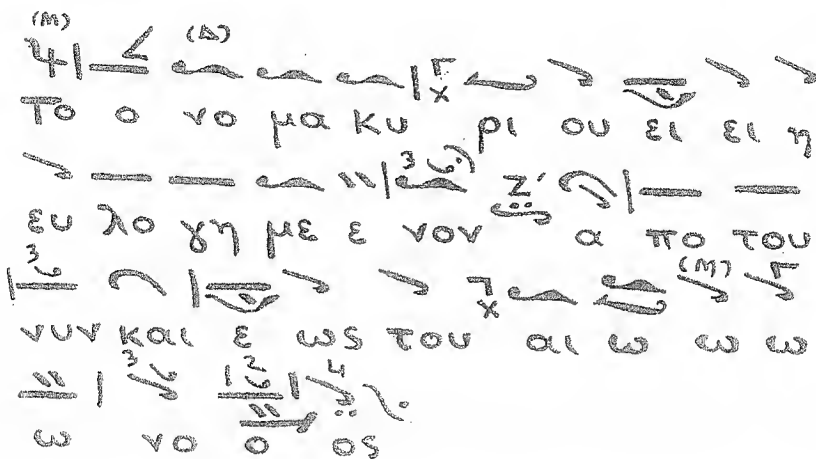 (Μ) (Δ)
Το ο νο μα κυ ρι ου ει ει η
ευ λο γη με ε νον α πο του
νυν και ε ως του αι ω ω ω
ω νο ο ος